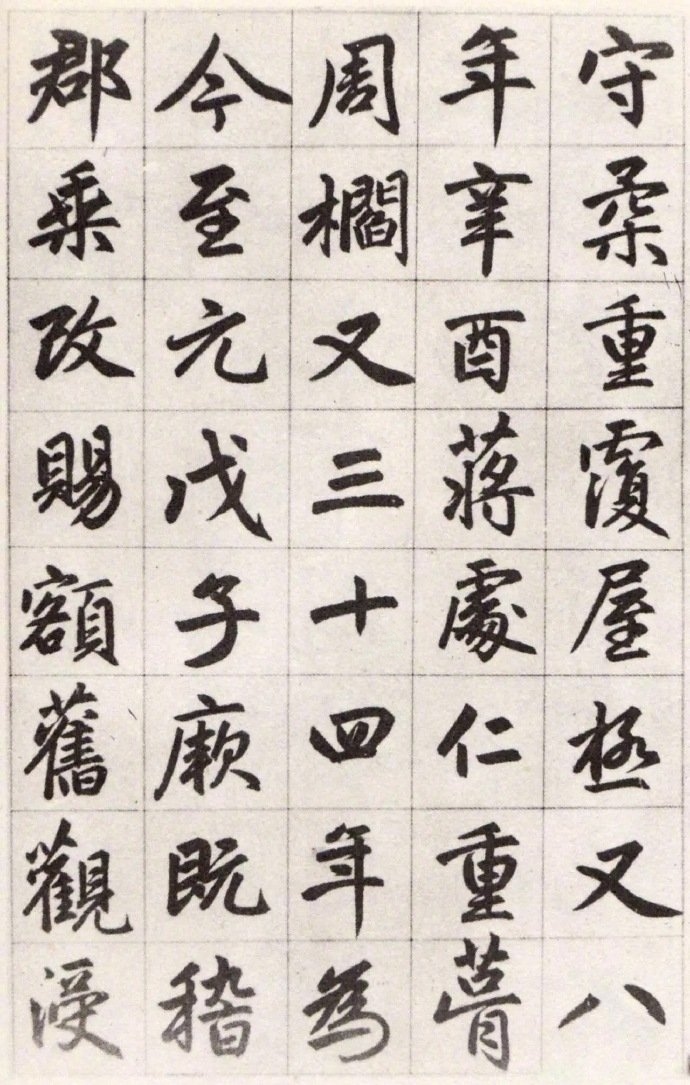 守柔重覆屋極又八
年辛酉蔣處仁重甍
周櫩又三十四年為
今至元戊子厥既稽
郡乘改賜額舊觀浸